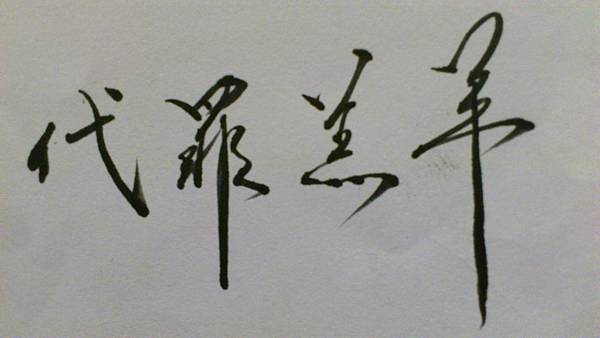 代罪羔羊